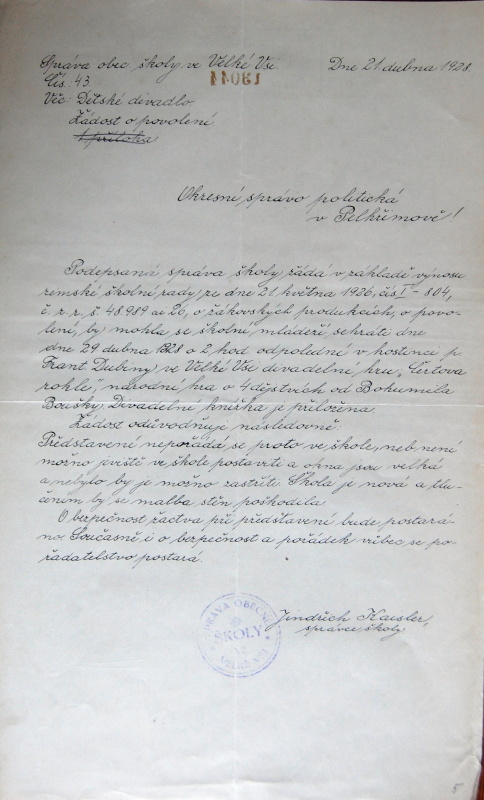 Správa obec. školy ve Velké Vsi Dne 21. dubna 1928.
Čís.: 43
Věc: Dětské divadlo
Žádost o povolení
1 příloha
Okresní správo politická
v Pelhřimově!
Podepsaná správa školy žádá v základě výnosu
zemské školní rady ze dne 21. května 1926, čís. I-804,
č. z. r. š. 48.989 ai 26, o žákovských produkcích, o povo-
lení, by mohla se školní mládeží sehráti dne
dne 29 dubna 1928 o 2 hod odpoledne v hostinci p.
Frant. Dubiny ve Velké Vsi divadelní hru „Čertova
rokle", národní hra o 4 dějstvích od Bohumila
Boušky. Divadelní knížka je přiložena.
Žádost odůvodňuje následovně:
Představení nepořádá se proto ve škole, neb není
možno jeviště ve škole postaviti a okna jsou velká
a nebylo by je možno zastříti. Škola je nová a tlu-
čením by se malba stěn poškodila.
O bezpečnost žactva při představení bude postará-
no. Současně i o bezpečnost a pořádek vůbec se po-
řadatelstvo postará.
Jindřich Kaisler,
správce školy
SPRÁVA OBECNÉ
ŠKOLY
VE
VELKÉ VSI
5